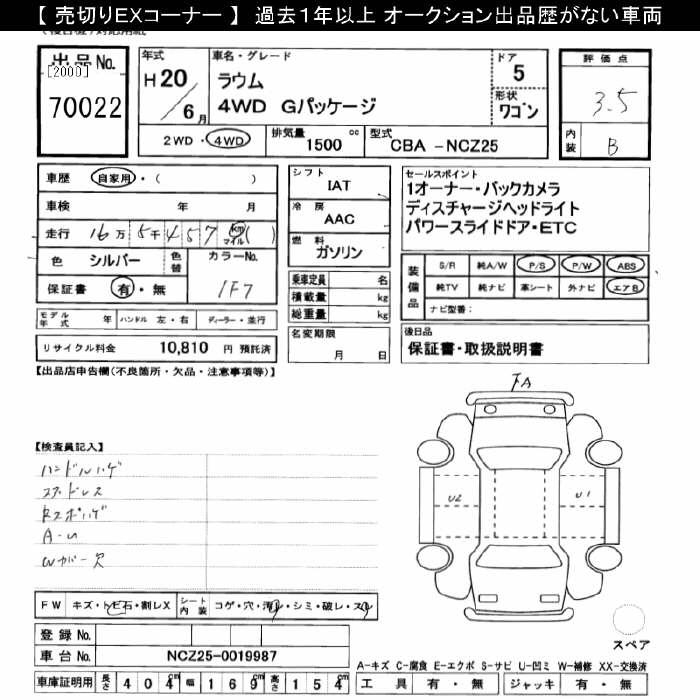 【 売切りEXコーナー 】 過去1年以上 オークション出品歴がない車両
出品No.
[2000]
70022
年式
H 20
/ 6月
車名・グレード
ラウム
4WD Gパッケージ
ドア
5
形状
ワゴン
2WD・4WD
排気量 1500 cc
型式 CBA -NCZ25
評価点
3.5
内装 B
車歴 自家用・( )
車検 年 月
走行 16万 5千 4 5 7 km マイル ( )
色 シルバー 色替
カラーNo.
1F7
保証書 有・無
モデル年式 年 ハンドル 左・右 ディーラー・並行
リサイクル料金 10,810 円 預託済
シフト
IAT
冷房
AAC
燃料
ガソリン
乗車定員 名
積載量 kg
総重量 kg
名変期限
月 日
セールスポイント
1オーナー・バックカメラ
ディスチャージヘッドライト
パワースライドドア・ETC
装備品
S/R 純A/W P/S P/W ABS
純TV 純ナビ 革シート 外ナビ エアB
ナビ型番:
後日品
保証書・取扱説明書
【出品店申告欄(不良箇所・欠品・注意事項等)】
【検査員記入】
ハンドルハゲ
スタッドレス
RスポハゲA-U
Wカバー欠
FA
U2
U1
スペア
FW キズ・トビ石・割レX
シート内装 コゲ・穴・汚レ・シミ・破レ・スレ
登録No.
車台No. NCZ25-0019987
車庫証明用 長さ 404cm 幅 169cm 高さ 154cm
A-キズ C-腐食 E-エクボ S-サビ U-凹ミ W-補修 XX-交換済
工具 有・無 ジャッキ 有・無